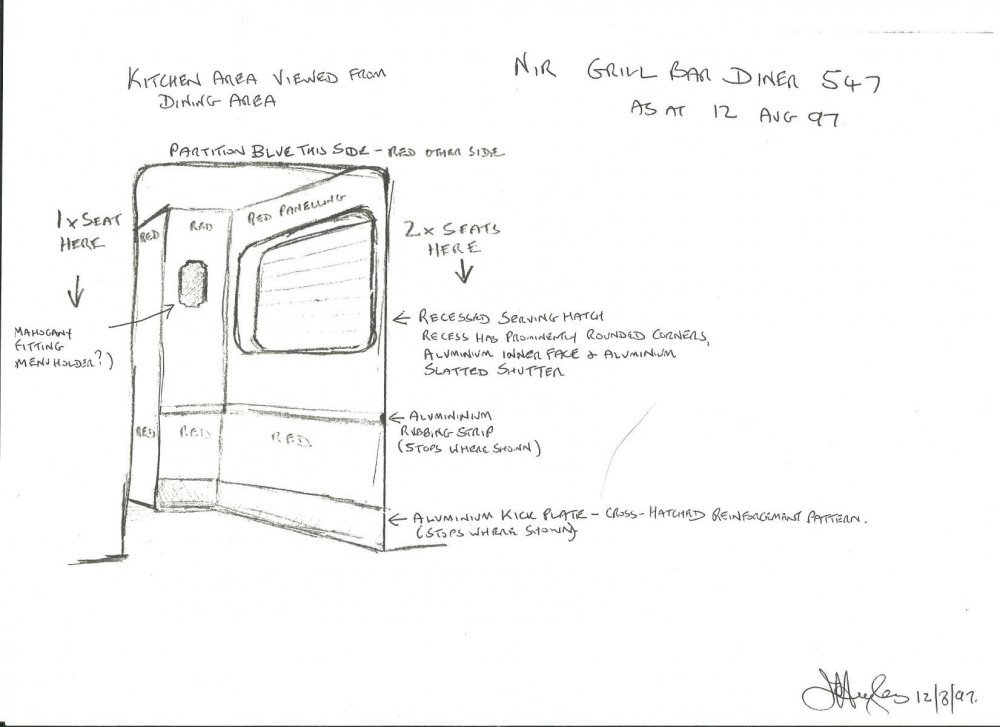 KITCHEN AREA VIEWED FROM
DINING AREA
NIR GRILL BAR DINER 547
AS AT 12 AUG 97
PARTITION BLUE THIS SIDE - RED OTHER SIDE
1 x SEAT
HERE
RED
RED
RED PANELLING
2 x SEATS
HERE
MAHOGANY
FITTING
MENU HOLDER?)
RECESSED SERVING HATCH
RECESS HAS PROMINENTLY ROUNDED CORNERS,
ALUMINIUM INNER FACE & ALUMINIUM
SLATTED SHUTTER
ALUMININIUM
RUBBING STRIP
(STOPS WHERE SHOWN)
RED
RED
RED.
ALUMINIUM KICK PLATE - CROSS-HATCHED REINFORCEMENT PATTERN.
(STOPS WHERE SHOWN)
12/8/97.